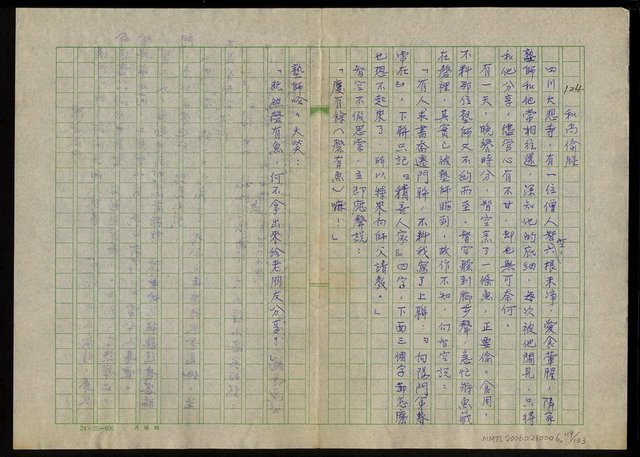 124 和尚偷腥
四川大悲寺，有一位僧人智空，六根未淨，愛食葷腥，隣家
塾師和他常相往還，深知他的底細，每次被他闖見，只得
和他分享，儘管心有不甘，却也無可奈何。
有一天，晚磬時分，智空烹了一條魚，正要偷偷食用，
不料那位塾師又不約而至，智空聽到脚步聲，急忙將魚藏
在磬裡，其實已被塾師瞄到，故作不知，向智空說：
「有人求書喬遷門聯，不料我寫了上聯：『向陽門第春
常在』，下聯只記『積善人家』四字，下面三個字都怎麼
也想不起來了，所以特來向師父請教。」
智空不假思索，立即應聲說：
「慶有餘（磬有魚）嘛！」
塾師哈哈大笑：
「既然磬有魚，何不拿出來給老朋友分享？」
24×25=600
NMTL20060210006, 119/133